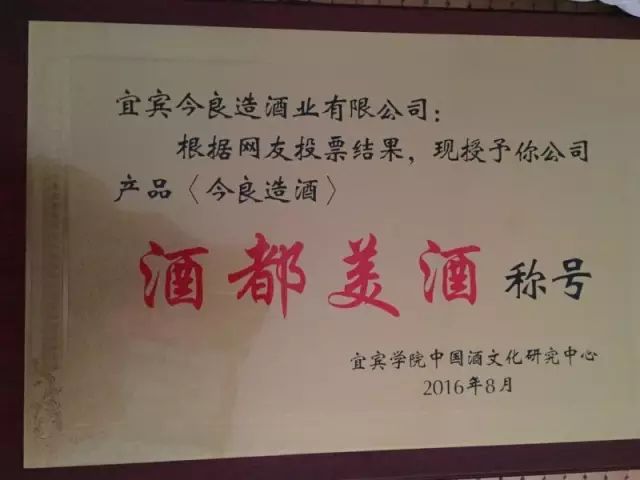 宜宾今良造酒业有限公司：
根据网友投票结果，现授予你公司
产品〈今良造酒〉
酒都美酒称号
宜宾学院中国酒文化研究中心
2016年8月